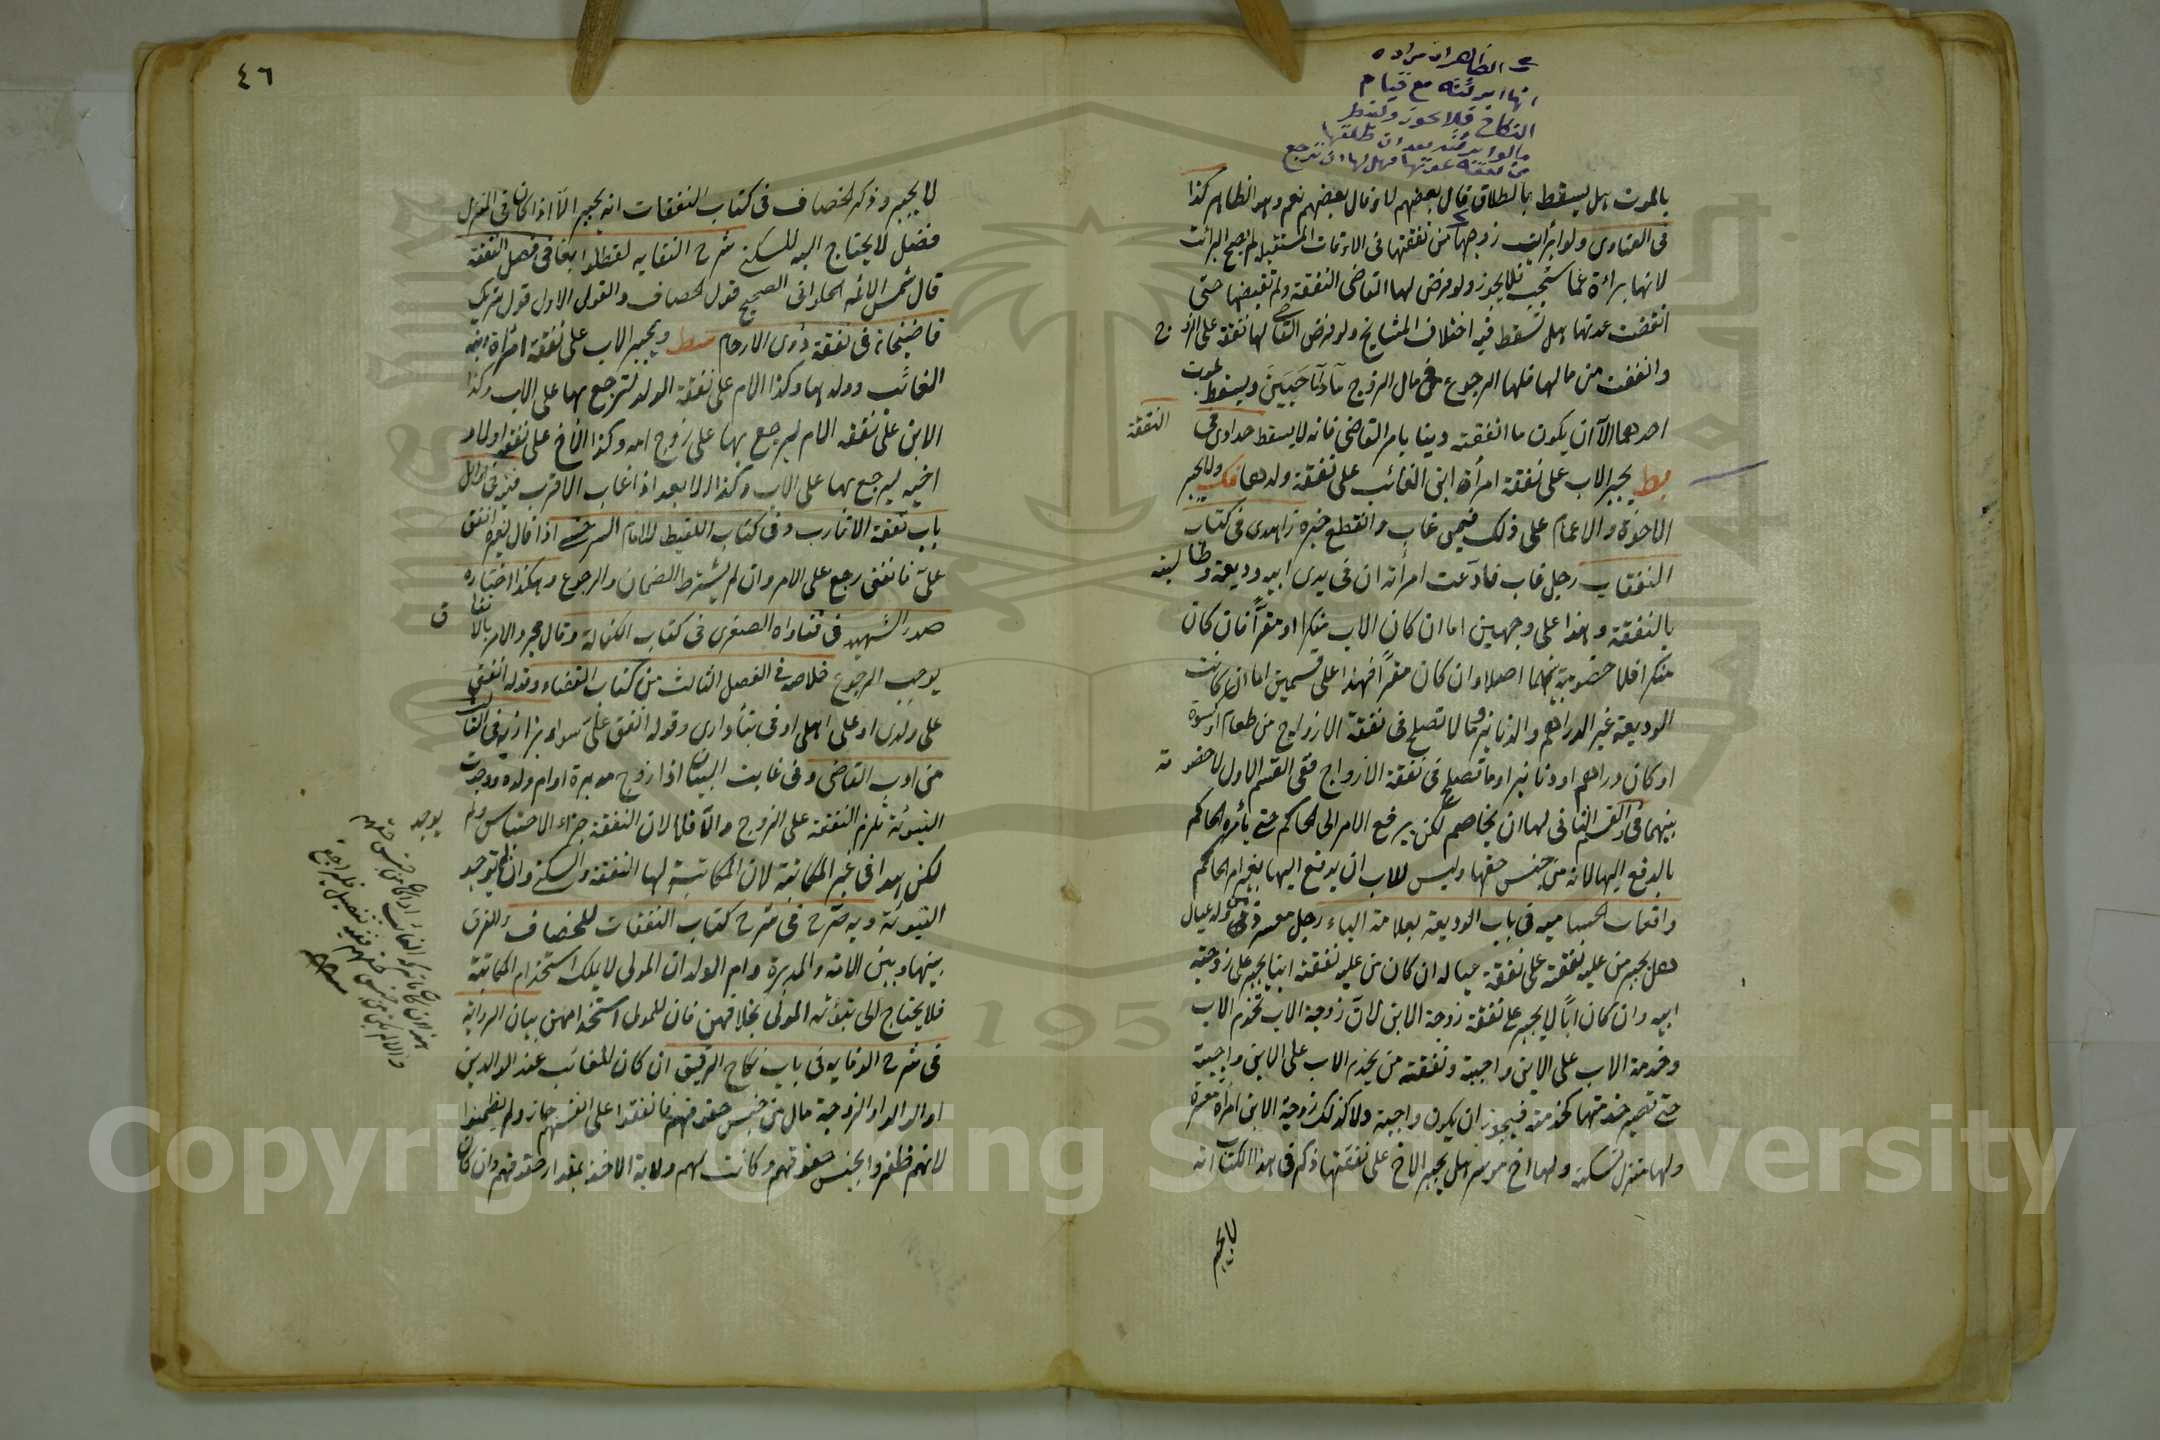 الظاهر ان مراده
انها ابرئته مع قيام
النكاح فلا يجوز
بعد ان طلقها
من نفقة عدتها فهل لها ان ترجع
بالموت هل يسقط بالطلاق قال بعضهم لا وقال بعضهم نعم وهو الظاهر كذا
فى الفتاوى ولو ابرأت زوجها من نفقتها فى الاوقات المستقبلة لم يصح البرائت
لانها براءة عما سيجب فلا يجوز ولو فرض لها القاضى النفقة ولم تقبضها حتى
انقضت عدتها هل تسقط فيه اختلاف المشايخ ولو فرض القاضى لها نفقة على الزوج
وانفقت من مالها فلها الرجوع فى مال الزوج ما داما حيين ويسقط بموت
احدهما الا ان يكون ما انفقته دينا بامر القاضى فانه لا يسقط حدادى فى
النفقة
يجبر الاب على نفقة امرأة ابنه الغائب على نفقة ولدهما ولا يجبر
الاخوة والاعمام على ذلك فيمن غاب وانقطع خبره زاهدى فى كتاب
النفقات رجل غاب فادعت امرأته ان فى يدى ابيه وديعة وطالبته
بالنفقة وهذا على وجهين اما ان كان الاب منكرا او مقرا فان كان
منكرا فلا خصومة بينهما اصلا وان كان مقرا فهذا على قسمين اما ان كانت
الوديعة غير الدراهم والدنانير وما لا تصلح فى نفقة الازواج من طعام او كسوة
او كان دراهم او دنانير او ما تصلح فى نفقة الازواج ففى القسم الاول لا خصومة
بينهما وفى القسم الثانى لها ان يخاصم لكن يرفع الامر الى الحاكم حتى يأمره الحاكم
بالدفع اليها لانه من جنس حقها وليس للاب ان يدفع اليها بغير امر الحاكم
واقعات حساميه فى باب الوديعة بعلامة الباء رجل معسر وله عيال
هل يجبر من عليه نفقته على نفقة عياله ان كان من عليه نفقته ابنا يجبر على زوجة
ابيه وان كان ابا لا يجبر على نفقة زوجة الابن لان زوجة الاب تخدم الاب
وخدمة الاب على الابن واجبة ونفقته من يخدم الاب على الابن واجبة
حتى تصير خدمتها كخدمته فيجوز ان يكون واجبة ولا كذلك زوجة الابن امرأة معسرة
ولها منزل تسكنه ولها اخ موسر هل يجبر الاخ على نفقتها ذكر فى هذا الكتاب انه
لا يجبر
٤٦
لا يجبر وذكر الخصاف فى كتاب النفقات انه يجبر الا اذا كان فى المنزل
فضل لا يحتاج اليه للسكنى شرح النقايه لقطلوابغا فى فصل النفقة
قال شمس الائمه الحلوانى الصحيح قول الخصاف والقول الاول قول شريك
قاضيخان فى نفقة ذوى الارحام ويجبر الاب على نفقة امرأة ابنه
الغائب وولدها وكذا الام على نفقة الولد لترجع بها على الاب وكذا
الابن على نفقة الام ليرجع بها على زوج امه وكذا الاخ على نفقة اولاد
اخيه ليرجع بها على الاب وكذا الابعد اذا غاب الاقرب
باب نفقة الاقارب وفى كتاب اللقيط للامام السرخسى اذا قال لغيره انفق
على فانفق رجع على الامر وان لم يشترط الضمان والرجوع وهكذا اختاره
صدر الشهيد فى فتاواه الصغرى فى كتاب الكفالة وقال مجرد الامر بالانفاق
يوجب الرجوع خلاصه فى الفصل الثالث من كتاب القضاء وقوله انفق
على ولدى او على اهلى او فى بناء دارى وقوله انفق على سواء بزازيه فى الثانى
من ادب القاضى وفى غاية البيان اذا زوج مدبرة او ام ولده ووجدت
التبوئة تلزم النفقة على الزوج والا فلا لان النفقة جزاء الاحتباس ولم يوجد
لكن هذا فى غير المكاتبة لان المكاتبة لها النفقة والسكنى وان لم توجد
التبوئة وبه صرح فى شرح كتاب النفقات للخصاف والفرق
بينها وبين الامة والمدبرة وام الولد ان المولى لا يملك استخدام المكاتبة
فلا يحتاج الى تبوئته المولى بخلافهن فان للمولى استخدامهن بيان الرواية
فى شرح الوقايه فى باب نكاح الرقيق ان كان للغائب عند الوالدين
او الولد او الزوجة مال من جنس حقوقهم فانفقوا على انفسهم جاز ولم يضمنوا
لانهم ظفروا بجنس حقوقهم وكانت لهم ولاية الاخذ بمقدار حقوقهم وان كان
Copyright © King Saud University
1957